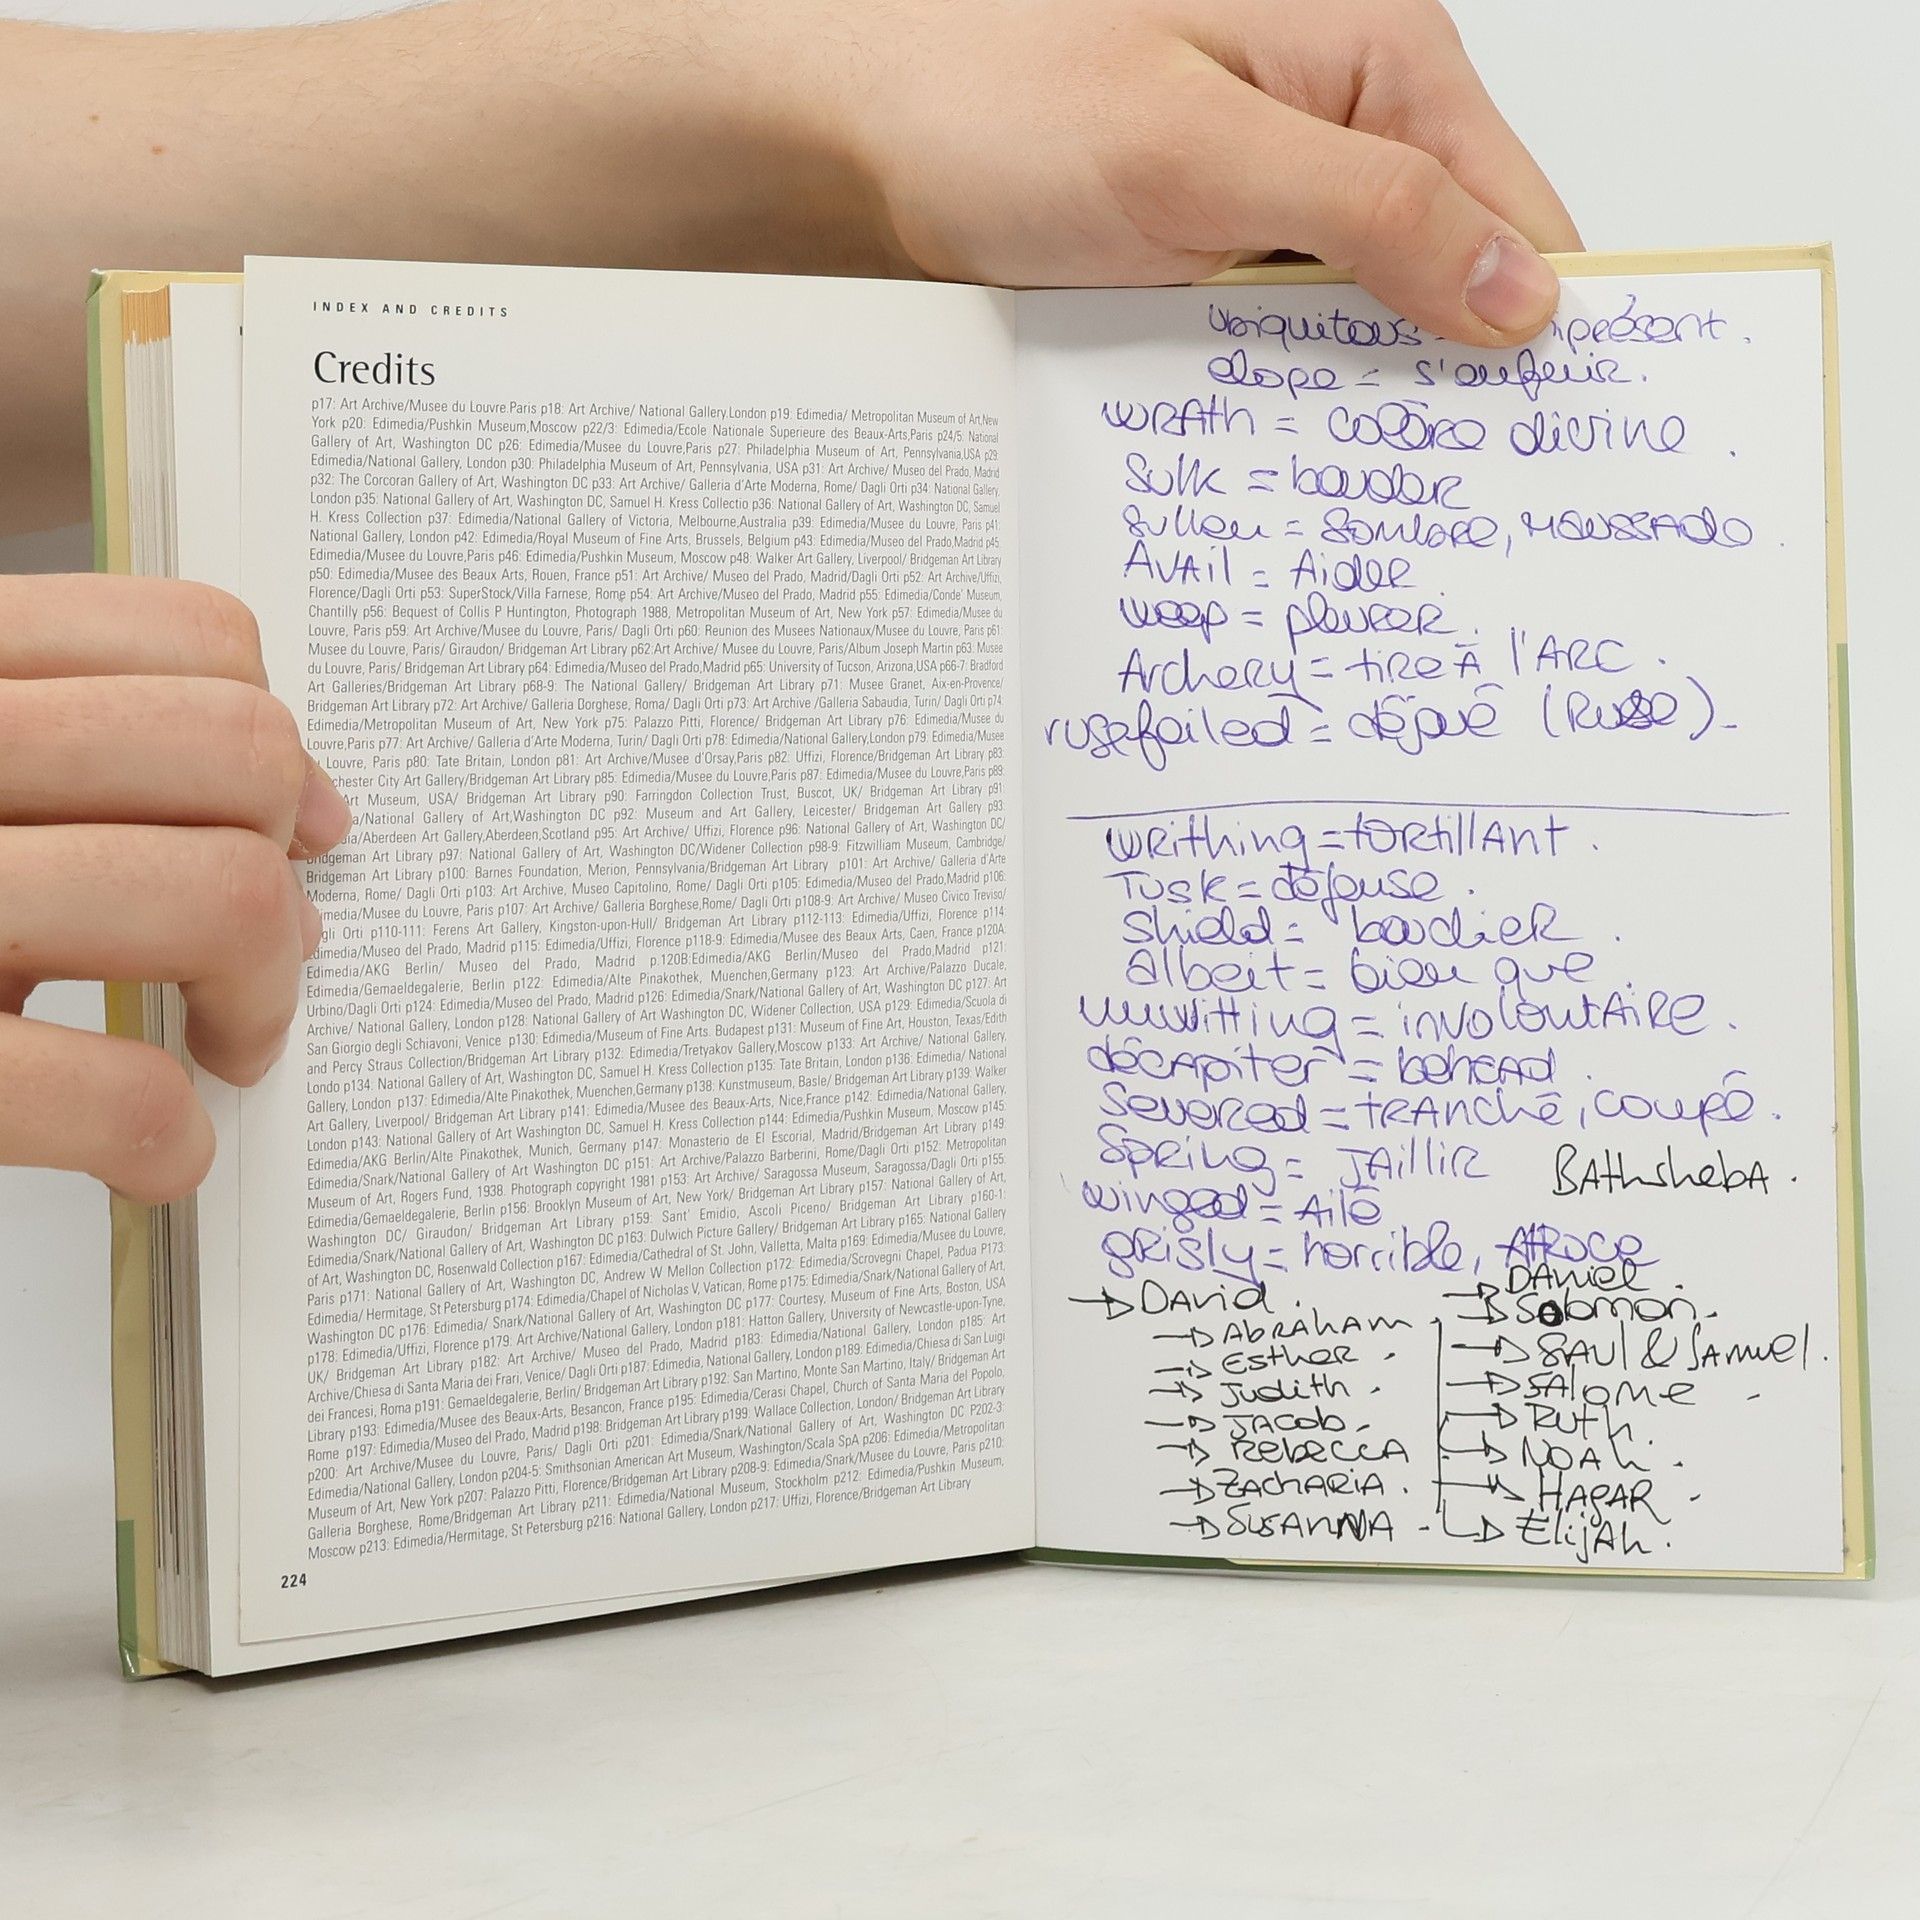 INDEX AND CREDITS
Credits
p17: Art Archive/Musee du Louvre.Paris p18: Art Archive/ National Gallery.London p19: Edimedia/ Metropolitan Museum of Art,New
York p20: Edimedia/Pushkin Museum,Moscow p22/3: Edimedia/Ecole Nationale Superieure des Beaux-Arts,Paris p24/5: National
Gallery of Art, Washington DC p26: Edimedia/Musee du Louvre,Paris p27: Philadelphia Museum of Art, Pennsylvania,USA p29:
Edimedia/National Gallery, London p30: Philadelphia Museum of Art, Pennsylvania, USA p31: Art Archive/ Museo del Prado, Madrid
p32: The Corcoran Gallery of Art, Washington DC p33: Art Archive/ Galleria d'Arte Moderna, Rome/ Dagli Orti p34: National Gallery,
London p35: National Gallery of Art, Washington DC, Samuel H. Kress Collectio p36: National Gallery of Art, Washington DC, Samuel
H. Kress Collection p37: Edimedia/National Gallery of Victoria, Melbourne,Australia p39: Edimedia/Musee du Louvre, Paris p41:
National Gallery, London p42: Edimedia/Royal Museum of Fine Arts, Brussels, Belgium p43: Edimedia/Museo del Prado,Madrid p45:
Edimedia/Musee du Louvre,Paris p46: Edimedia/Pushkin Museum, Moscow p48: Walker Art Gallery, Liverpool/ Bridgeman Art Library
p50: Edimedia/Musee des Beaux Arts, Rouen, France p51: Art Archive/ Museo del Prado, Madrid/Dagli Orti p52: Art Archive/Uffizi,
Florence/Dagli Orti p53: SuperStock/Villa Farnese, Rome p54: Art Archive/Museo del Prado, Madrid p55: Edimedia/Conde' Museum,
Chantilly p56: Bequest of Collis P Huntington, Photograph 1988, Metropolitan Museum of Art, New York p57: Edimedia/Musee du
Louvre, Paris p59: Art Archive/Musee du Louvre, Paris/ Dagli Orti p60: Reunion des Musees Nationaux/Musee du Louvre, Paris p61:
Musee du Louvre, Paris/ Giraudon/ Bridgeman Art Library p62:Art Archive/ Musee du Louvre, Paris/Album Joseph Martin p63: Musee
du Louvre, Paris/ Bridgeman Art Library p64: Edimedia/Museo del Prado,Madrid p65: University of Tucson, Arizona,USA p66-7: Bradford
Art Galleries/Bridgeman Art Library p68-9: The National Gallery/ Bridgeman Art Library p71: Musee Granet, Aix-en-Provence/
Bridgeman Art Library p72: Art Archive/ Galleria Borghese, Roma/ Dagli Orti p73: Art Archive /Galleria Sabauda, Turin/ Dagli Orti p74:
Edimedia/Metropolitan Museum of Art, New York p75: Palazzo Pitti, Florence/ Bridgeman Art Library p76: Edimedia/Musee du
Louvre,Paris p77: Art Archive/ Galleria d'Arte Moderna, Turin/ Dagli Orti p78: Edimedia/National Gallery,London p79: Edimedia/Musee
Louvre, Paris p80: Tate Britain, London p81: Art Archive/Musee d'Orsay,Paris p82: Uffizi, Florence/Bridgeman Art Library p83:
chester City Art Gallery/Bridgeman Art Library p85: Edimedia/Musee du Louvre,Paris p87: Edimedia/Musee du Louvre,Paris p89:
Art Museum, USA/ Bridgeman Art Library p90: Farringdon Collection Trust, Buscot, UK/ Bridgeman Art Library p91:
a/National Gallery of Art,Washington DC p92: Museum and Art Gallery, Leicester/ Bridgeman Art Gallery p93:
ia/Aberdeen Art Gallery,Aberdeen,Scotland p95: Art Archive/ Uffizi, Florence p96: National Gallery of Art, Washington DC/
Bridgeman Art Library p97: National Gallery of Art, Washington DC/Widener Collection p98-9: Fitzwilliam Museum, Cambridge/
Bridgeman Art Library p100: Barnes Foundation, Merion, Pennsylvania/Bridgeman Art Library p101: Art Archive/ Galleria d'Arte
Moderna, Rome/ Dagli Orti p103: Art Archive, Museo Capitolino, Rome/ Dagli Orti p105: Edimedia/Museo del Prado,Madrid p106:
Edimedia/Musee du Louvre, Paris p107: Art Archive/ Galleria Borghese,Rome/ Dagli Orti p108-9: Art Archive/ Museo Civico Treviso/
gli Orti p110-111: Ferens Art Gallery, Kingston-upon-Hull/ Bridgeman Art Library p112-113: Edimedia/Uffizi, Florence p114:
Edimedia/Museo del Prado, Madrid p115: Edimedia/Uffizi, Florence p118-9: Edimedia/Musee des Beaux Arts, Caen, France p120A:
Edimedia/AKG Berlin/ Museo del Prado, Madrid p.120B:Edimedia/AKG Berlin/Museo del Prado,Madrid p121:
Edimedia/Gemaeldegalerie, Berlin p122: Edimedia/Alte Pinakothek, Muenchen,Germany p123: Art Archive/Palazzo Ducale,
Urbino/Dagli Orti p124: Edimedia/Museo del Prado, Madrid p126: Edimedia/Snark/National Gallery of Art, Washington DC p127: Art
Archive/ National Gallery, London p128: National Gallery of Art Washington DC, Widener Collection, USA p129: Edimedia/Scuola di
San Giorgio degli Schiavoni, Venice p130: Edimedia/Museum of Fine Arts. Budapest p131: Museum of Fine Art, Houston, Texas/Edith
and Percy Straus Collection/Bridgeman Art Library p132: Edimedia/Tretyakov Gallery,Moscow p133: Art Archive/ National Gallery,
Londo p134: National Gallery of Art, Washington DC, Samuel H. Kress Collection p135: Tate Britain, London p136: Edimedia/ National
Gallery, London p137: Edimedia/Alte Pinakothek, Muenchen,Germany p138: Kunstmuseum, Basle/ Bridgeman Art Library p139: Walker
Art Gallery, Liverpool/ Bridgeman Art Library p141: Edimedia/Musee des Beaux-Arts, Nice,France p142: Edimedia/National Gallery,
London p143: National Gallery of Art Washington DC, Samuel H. Kress Collection p144: Edimedia/Pushkin Museum, Moscow p145:
Edimedia/AKG Berlin/Alte Pinakothek, Munich, Germany p147: Monasterio de El Escorial, Madrid/Bridgeman Art Library p149:
Edimedia/Snark/National Gallery of Art Washington DC p151: Art Archive/Palazzo Barberini, Rome/Dagli Orti p152: Metropolitan
Museum of Art, Rogers Fund, 1938. Photograph copyright 1981 p153: Art Archive/ Saragossa Museum, Saragossa/Dagli Orti p155:
Edimedia/Gemaeldegalerie, Berlin p156: Brooklyn Museum of Art, New York/ Bridgeman Art Library p157: National Gallery of Art,
Washington DC/ Giraudon/ Bridgeman Art Library p159: Sant' Emidio, Ascoli Piceno/ Bridgeman Art Library p160-1:
Edimedia/Snark/National Gallery of Art, Washington DC p163: Dulwich Picture Gallery/ Bridgeman Art Library p165: National Gallery
of Art, Washington DC, Rosenwald Collection p167: Edimedia/Cathedral of St. John, Valletta, Malta p169: Edimedia/Musee du Louvre,
Paris p171: National Gallery of Art, Washington DC, Andrew W Mellon Collection p172: Edimedia/Scrovegni Chapel, Padua P173:
Edimedia/ Hermitage, St Petersburg p174: Edimedia/Chapel of Nicholas V, Vatican, Rome p175: Edimedia/Snark/National Gallery of Art,
Washington DC p176: Edimedia/ Snark/National Gallery of Art, Washington DC p177: Courtesy, Museum of Fine Arts, Boston, USA
p178: Edimedia/Uffizi, Florence p179: Art Archive/National Gallery, London p181: Hatton Gallery, University of Newcastle-upon-Tyne,
UK/ Bridgeman Art Library p182: Art Archive/ Museo del Prado, Madrid p183: Edimedia/National Gallery, London p185: Art
Archive/Chiesa di Santa Maria dei Frari, Venice/ Dagli Orti p187: Edimedia, National Gallery, London p189: Edimedia/Chiesa di San Luigi
dei Francesi, Roma p191: Gemaeldegalerie, Berlin/ Bridgeman Art Library p192: San Martino, Monte San Martino, Italy/ Bridgeman Art
Library p193: Edimedia/Musee des Beaux-Arts, Besancon, France p195: Edimedia/Cerasi Chapel, Church of Santa Maria del Popolo,
Rome p197: Edimedia/Museo del Prado, Madrid p198: Bridgeman Art Library p199: Wallace Collection, London/ Bridgeman Art Library
p200: Art Archive/Musee du Louvre, Paris/ Dagli Orti p201: Edimedia/Snark/National Gallery of Art, Washington DC P202-3:
Edimedia/National Gallery, London p204-5: Smithsonian American Art Museum, Washington/Scala SpA p206: Edimedia/Metropolitan
Museum of Art, New York p207: Palazzo Pitti, Florence/Bridgeman Art Library p208-9: Edimedia/Snark/Musee du Louvre, Paris p210:
Galleria Borghese, Rome/Bridgeman Art Library p211: Edimedia/National Museum, Stockholm p212: Edimedia/Pushkin Museum,
Moscow p213: Edimedia/Hermitage, St Petersburg p216: National Gallery, London p217: Uffizi, Florence/Bridgeman Art Library
224
ubiquitous
elope = s'enfuir.
wrath = colère divine.
sulk = bouder
sullen = sombre, maussade.
Avail = Aider.
weep = pleurer.
Archery = tire à l'ARC.
ruse failed = déjoué (Ruse)
writhing = tortillant.
Tusk = défense.
shield = bouclier.
albeit = bien que.
unwitting = involontaire.
décapiter = behead.
severed = tranché, coupé.
Spring = jaillir
Bathsheba.
winged = ailé
grisly = horrible, atroce
→ David.
→ Abraham.
→ Esther.
→ Judith.
→ Jacob.
→ Rebecca
→ Zacharia.
→ Susanna
→ Daniel.
→ Solomon.
→ Saul & Samuel.
→ Salome
→ Ruth.
→ Noah.
→ Hagar
→ Elijah.